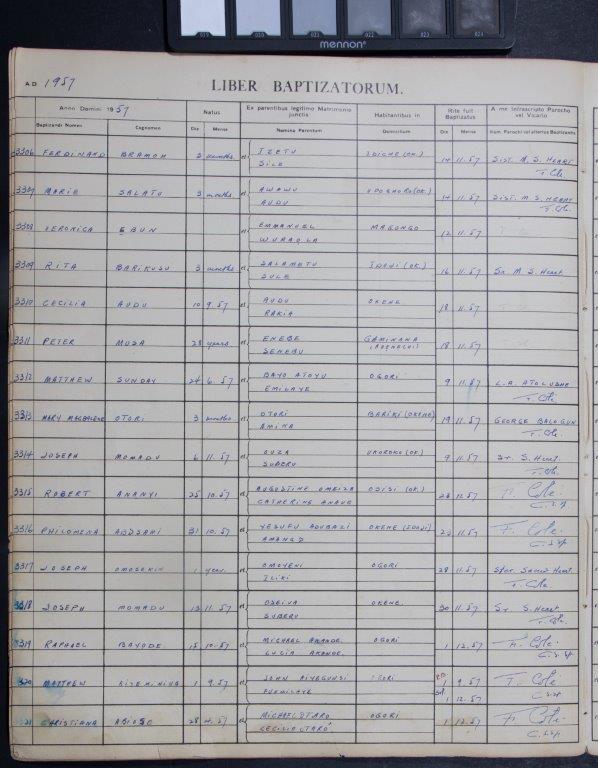 019 020 021 022 023 024
mennon
A D 1957 LIBER BAPTIZATORUM.
Anno Domini 1957 Natus Ex parentibus legitimo Matrimonio junctis Habitantibus in Rite fuit Baptizatus A me infrascripto Parocho vel Vicario
Baptizandi Nomen Cognomen Die Mense Nomina Parentum Domicilium Die Mense Nom. Parochi vel alterius Baptizantis
3306 FERDINAND BRAMOH 2 months et IZETU IDICHE (OK.) 14 11.57 SIST. M. S. HEART
SILE F. Cole
3307 MARIE SALATU 3 months et AWAWU UPOGHORO (OK.) 14 11.57 SIST. M S. HEART
AUDU F. Cole
3308 VERONICA EBUN et EMMANUEL MAGONGO 12 11.57
WURAOLA
3309 RITA BARIKUSU 3 months et SALAMETU IDOJI (OK.) 16 11.57 Sr M S. Heart
SULE
3310 CECILIA AUDU 10 9.57 et AUDU OKENE 18 11.57
RAKIA
3311 PETER MUSA 28 years et ENEBE GAMINANA 18 11.57
SENEBU
3312 MATTHEW SUNDAY 24 6.57 et BAYO ATOYU OGORI 9 11.57
EMILAYE F. Cole
3313 MARY MAGDALENE OTORI 3 months et OTORI BARIKI (OKENE) 19 11.57 GEORGE BALOGUN
AMINA F. Cole.
3314 JOSEPH MOMADU 6 11.57 et OUZA UKOROKO (OK.) 9 11.57 Sr. S. Heart.
SUBERU F. Cole
3315 ROBERT ANANYI 25 10.57 et AUGUSTINE OMEIZA (OK) 11.57 F. Cole
CATHERINE C.S.Sp
3316 PHILOMENA 31 10.57 et YESUFU OKENE (IDOJI) 11.57 F. Cole
C.S.Sp
3317 JOSEPH OMOSEKIN 1 year. et OMOYENI OGORI 28 11.57 Ster. Sacred Heart.
ILIKI F. Cole.
3318 JOSEPH MOMADU 13 11.57 et OSEIVA OKENE. 30 11.57 Sr S. Heart
SUBERU F. Cole
3319 RAPHAEL BAYODE 15 10.57 et MICHAEL AKANDE. OGORI 1 12.57 F. Cole
LUCIA AKANDE. C.S.Sp
3320 MATTHEW 1 9.57 et JOHN OGORI 1 9.57 F. Cole
FUNMILAYE 1 12.57 C.S.Sp
3321 CHRISTIANA ABIOSE 28 4.57 et MICHAEL OTARO OGORI 1 12.57 F. Cole
CECILIA OTARO C.S.Sp